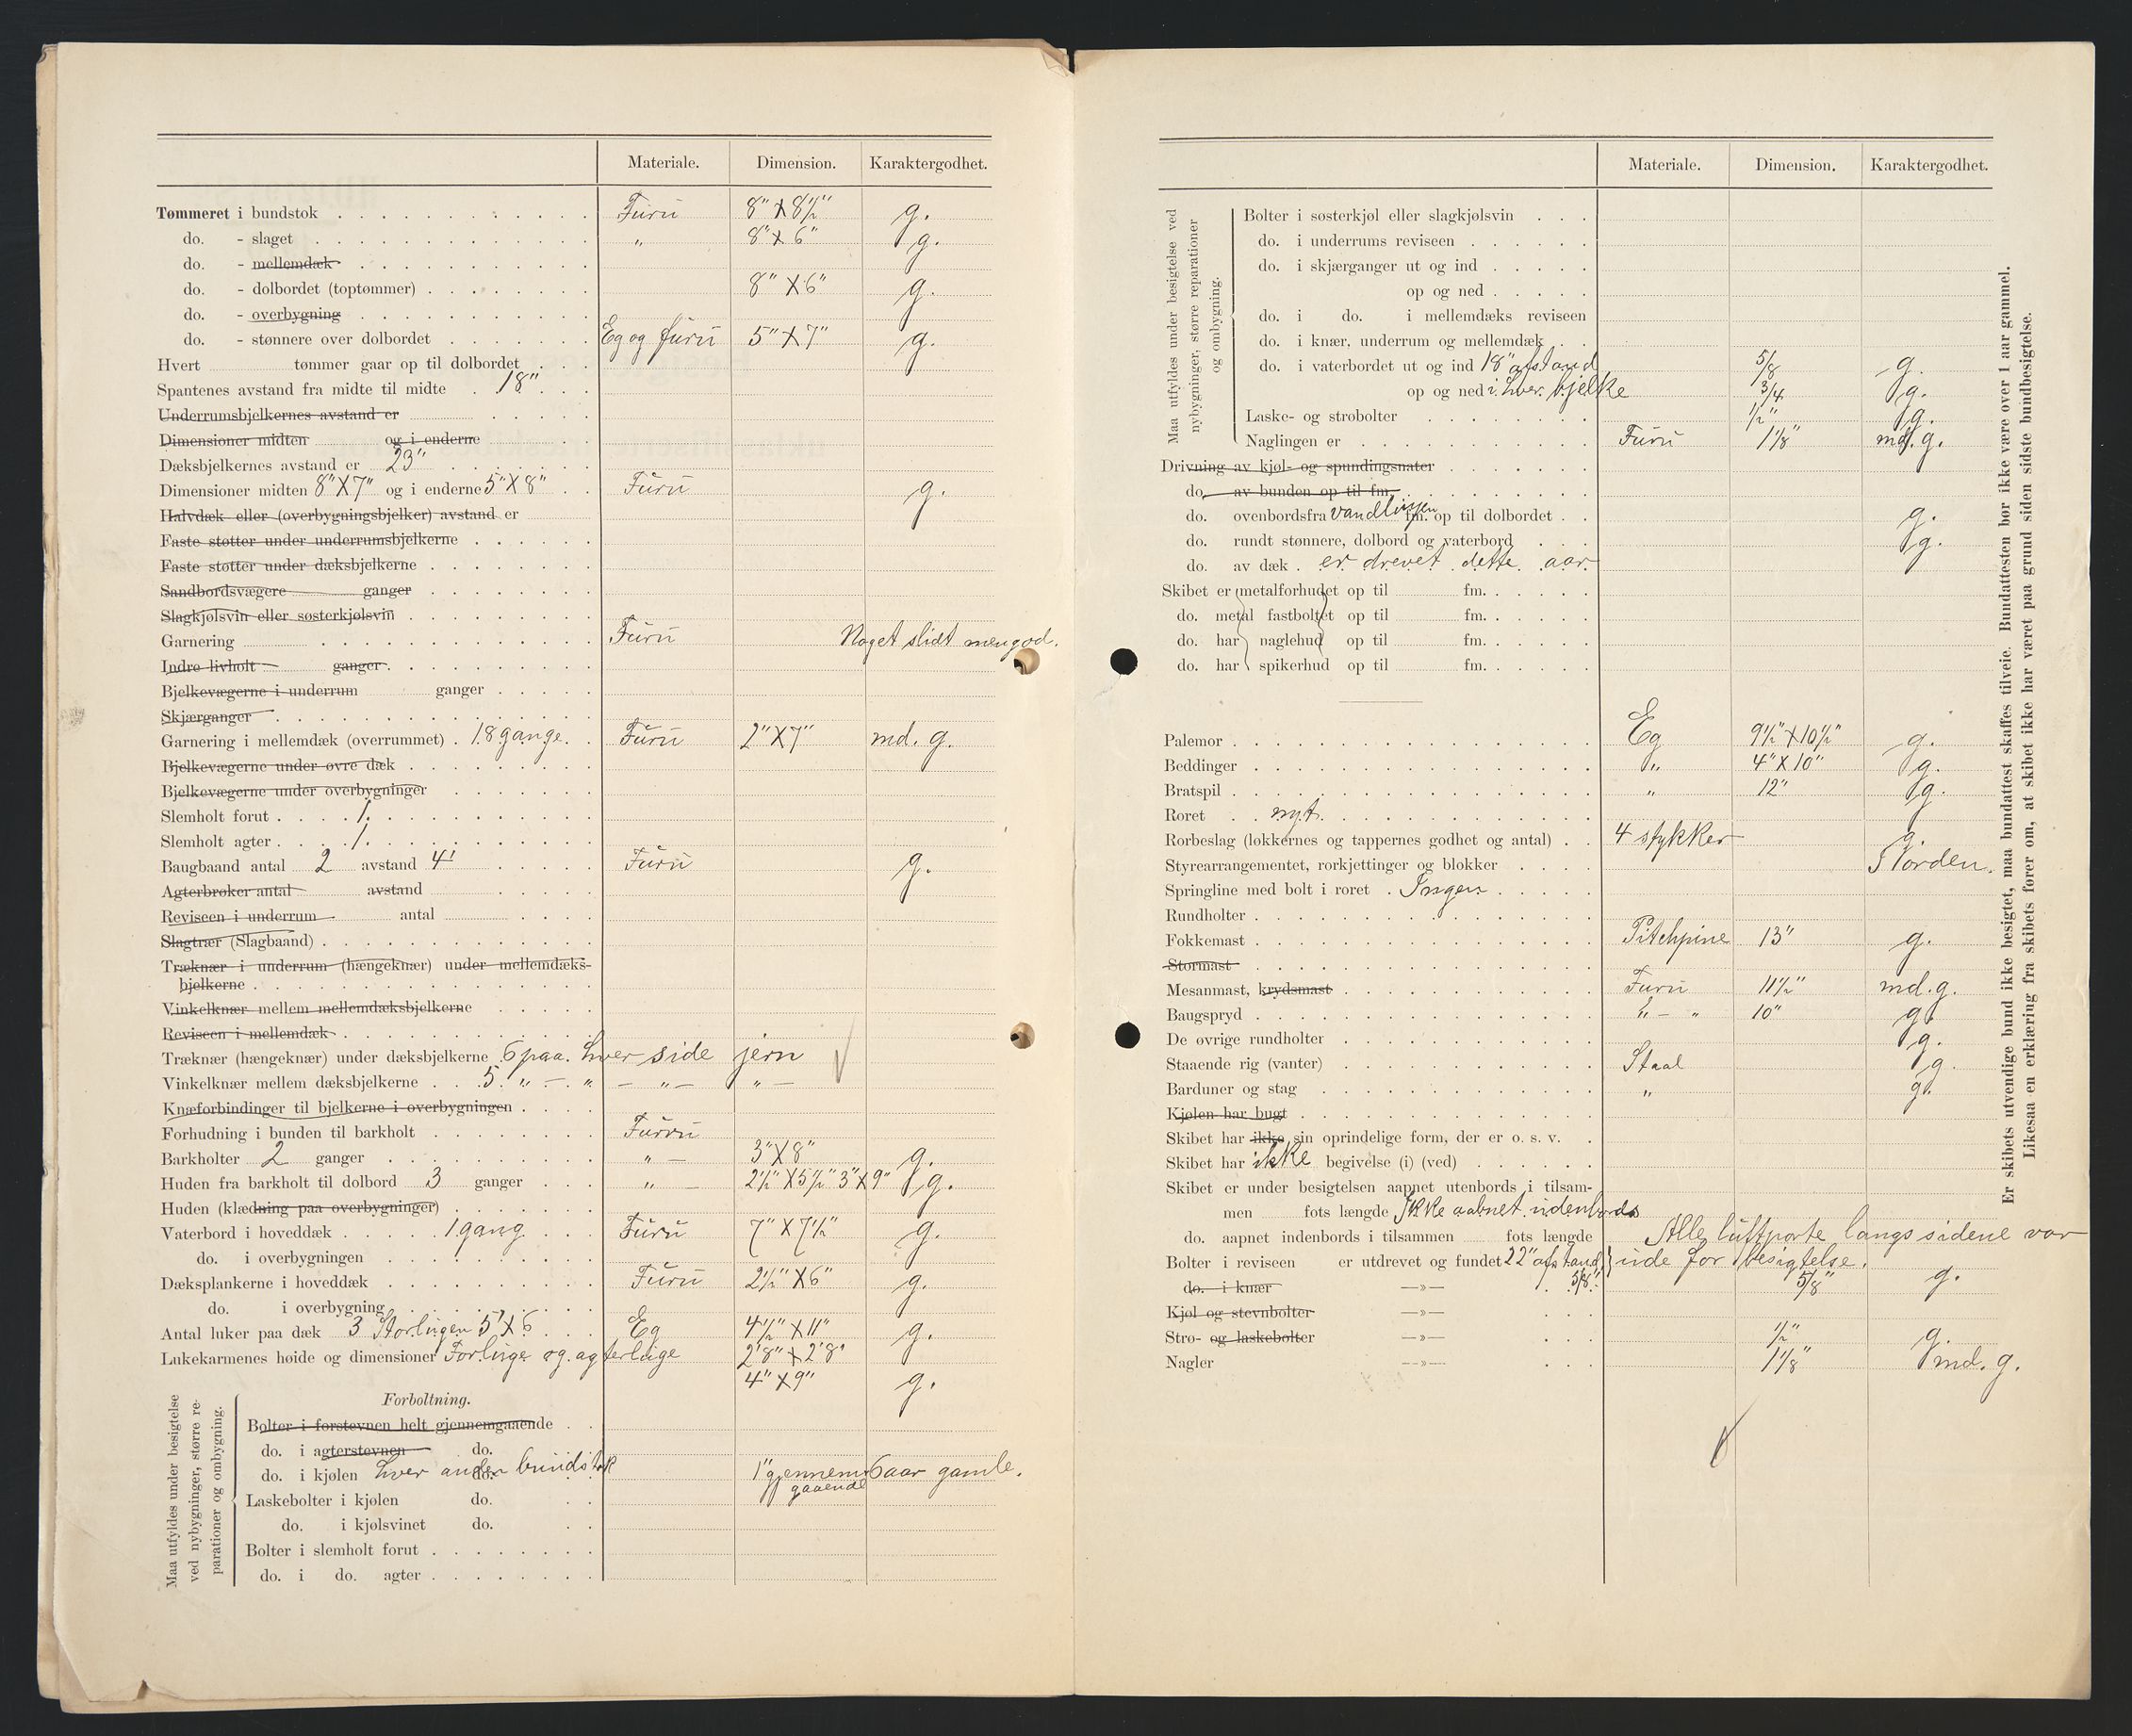 Materiale. Dimension. Karaktergodhet.
Tømmeret i bundstok Furu 8" X 8½" g.
do. - slaget " 8" X 6" g.
do. - mellemdæk
do. - dolbordet (toptømmer) 8" X 6" g.
do. - overbygning
do. - stønnere over dolbordet Eg og furu 5" X 7" g.
Hvert tømmer gaar op til dolbordet
Spantenes avstand fra midte til midte 18"
Underrumsbjelkernes avstand er
Dimensioner midten og i enderne
Dæksbjelkernes avstand er 23"
Dimensioner midten 8" X 7" og i enderne 5" X 8" Furu g.
Halvdæk eller (overbygningsbjelker) avstand er
Faste støtter under underrumsbjelkerne
Faste støtter under dæksbjelkerne
Sandbordsvægere ganger
Slagkjølsvin eller søsterkjølsvin
Garnering Furu Noget slidt men god.
Indre livholt ganger
Bjelkevægerne i underrum ganger
Skjærganger
Garnering i mellemdæk (overrummet) 18 gange Furu 2" X 7" md. g.
Bjelkevægerne under øvre dæk
Bjelkevægerne under overbygninger
Slemholt forut 1.
Slemholt agter 1.
Baugbaand antal 2 avstand 4' Furu g.
Agterbrøker antal avstand
Reviseen i underrum antal
Slagtrær (Slagbaand)
Træknær i underrum (hængeknær) under mellemdæks-
bjelkerne
Vinkelknær mellem mellemdæksbjelkerne
Reviseen i mellemdæk
Træknær (hængeknær) under dæksbjelkerne 6 paa hver side jern
Vinkelknær mellem dæksbjelkerne 5 " — " — " — " —
Knæforbindinger til bjelkerne i overbygningen
Forhudning i bunden til barkholt Furu
Barkholter 2 ganger " — 3" X 8" g.
Huden fra barkholt til dolbord 3 ganger " — 2½" X 5½" 3" X 9" g.
Huden (klædning paa overbygninger)
Vaterbord i hoveddæk 1 gang Furu 7" X 7½" g.
do. i overbygningen
Dæksplankerne i hoveddæk Furu 2½" X 6" g.
do. i overbygning
Antal luker paa dæk 3 Storlugen 5' X 6 Eg 4½" X 11" g.
Lukekarmenes høide og dimensioner Forluge og agterluge 2'8" X 2'8"
4" X 9" g.
Maa utfyldes under besigtelse
ved nybygninger, større re-
parationer og ombygning.
Forboltning.
Bolter i forstevnen helt gjennemgaaende
do. i agterstevnen do.
do. i kjølen hver anden bundstok do. 1" gjennem- 6 aar gamle.
gaaende
Laskebolter i kjølen do.
do. i kjølsvinet do.
Bolter i slemholt forut
do. i do. agter
Materiale. Dimension. Karaktergodhet.
Maa utfyldes under besigtelse ved
nybygninger, større reparationer
og ombygning.
Bolter i søsterkjøl eller slagkjølsvin
do. i underrums reviseen
do. i skjærganger ut og ind
op og ned
do. i do. i mellemdæks reviseen
do. i knær, underrum og mellemdæk
do. i vaterbordet ut og ind 18" afstand 5/8 g.
op og ned i hver bjelke 3/4 g.
Laske- og strøbolter ½" g.
Naglingen er Furu 1⅛" md. g.
Drivning av kjøl- og spundingsnater
do. av bunden op til fm.
do. ovenbords fra vandlinjen fm. op til dolbordet g.
do. rundt stønnere, dolbord og vaterbord g.
do. av dæk er drevet dette aar
Skibet er metalforhudet op til fm.
do. metal fastboltet op til fm.
do. har naglehud op til fm.
do. har spikerhud op til fm.
Palemor Eg 9½" X 10½" g.
Beddinger " 4" X 10" g.
Bratspil " 12" g.
Roret nyt.
Rorbeslag (løkkernes og tappernes godhet og antal) 4 stykker g.
Styrearrangementet, rorkjettinger og blokker I orden.
Springline med bolt i roret Ingen
Rundholter
Fokkemast Pitchpine 13" g.
Stormast
Mesanmast, krydsmast Furu 11½" md. g.
Baugspryd " — " 10" g.
De øvrige rundholter g.
Staaende rig (vanter) Staal g.
Barduner og stag " g.
Kjølen har bugt
Skibet har ikke sin oprindelige form, der er o. s. v.
Skibet har ikke begivelse (i) (ved)
Skibet er under besigtelsen aapnet utenbords i tilsam-
men fots længde Ikke aabnet udenbords
do. aapnet indenbords i tilsammen fots længde Alle luftporte langs sidene var
Bolter i reviseen er utdrevet og fundet 22" afstand ude for besigtelse.
do. i knær —»— 5/8" 5/8" g.
Kjøl og stevnbolter —»—
Strø- og laskebolter —»— ½" g.
Nagler —»— 1⅛" md. g.
Er skibets utvendige bund ikke besigtet, maa bundattest skaffes tilveie. Bundattesten bør ikke være over 1 aar gammel.
Likesaa en erklæring fra skibets fører om, at skibet ikke har været paa grund siden sidste bundbesigtelse.